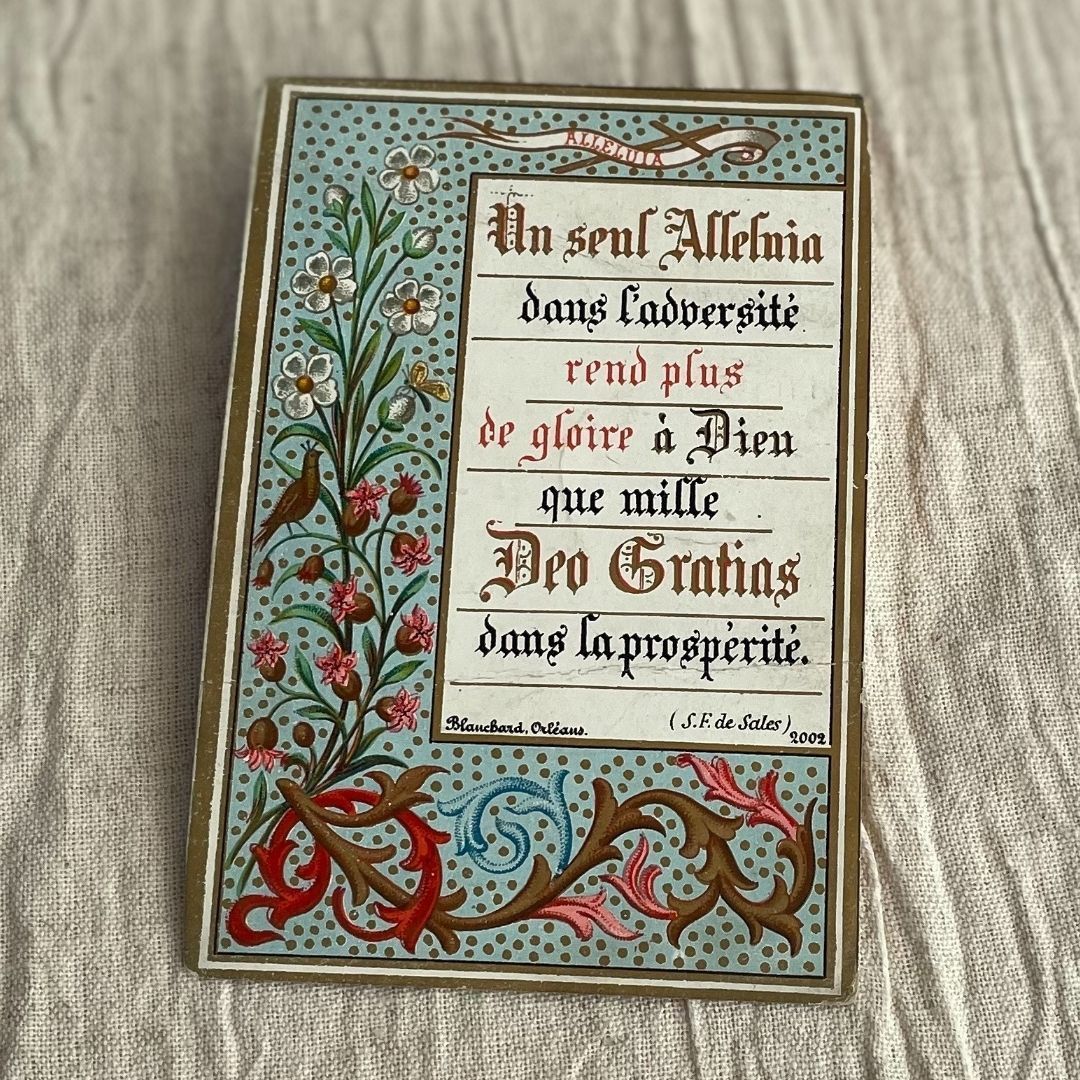 ALLELUIA
Un seul Alleluia
dans l'adversité
rend plus
de gloire à Dieu
que mille
Deo Gratias
dans la prospérité.
(S.F. de Sales)
Blanchard, Orléans.
2002